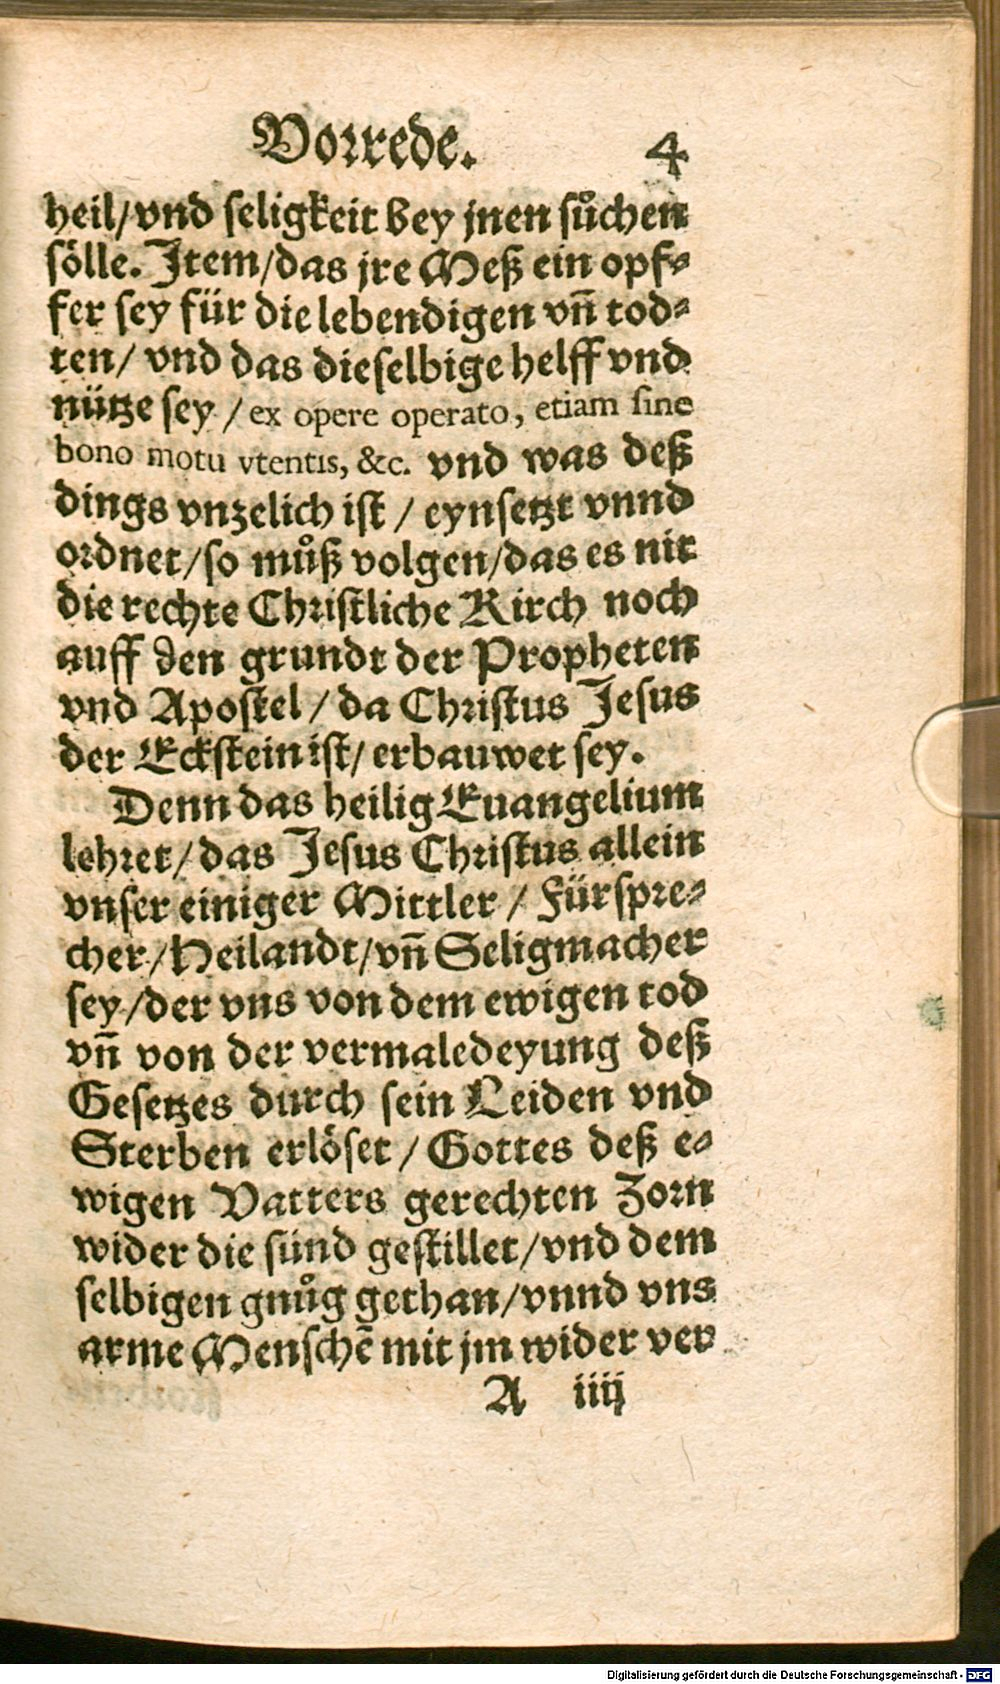 Vorrede. 4
heil/vnd seligkeit bey jnen sůchen
sölle. Item/das jre Meß ein opf⸗
fer sey für die lebendigen vñ tod⸗
ten/ vnd das dieselbige helff vnd
nütze sey / ex opere operato, etiam sine
bono motu vtentis, &c. vnd was deß
dings vnzelich ist / eynsetzt vnnd
ordnet/so můß volgen/das es nit
die rechte Christliche Kirch noch
auff den grundt der Propheten
vnd Apostel / da Christus Jesus
der Eckstein ist/ erbauwet sey.
Denn das heilig Euangelium
lehret/ das Jesus Christus allein
vnser einiger Mittler / Fürspre⸗
cher/Heilandt/vñ Seligmacher
sey/der vns von dem ewigen tod
vñ von der vermaledeyung deß
Gesetzes durch sein Leiden vnd
Sterben erlöset / Gottes deß e⸗
wigen Vatters gerechten Zorn
wider die sünd gestillet/vnd dem
selbigen gnůg gethan/vnnd vns
arme Menschẽ mit jm wider ver
A iiij
Digitalisierung gefördert durch die Deutsche Forschungsgemeinschaft - DFG